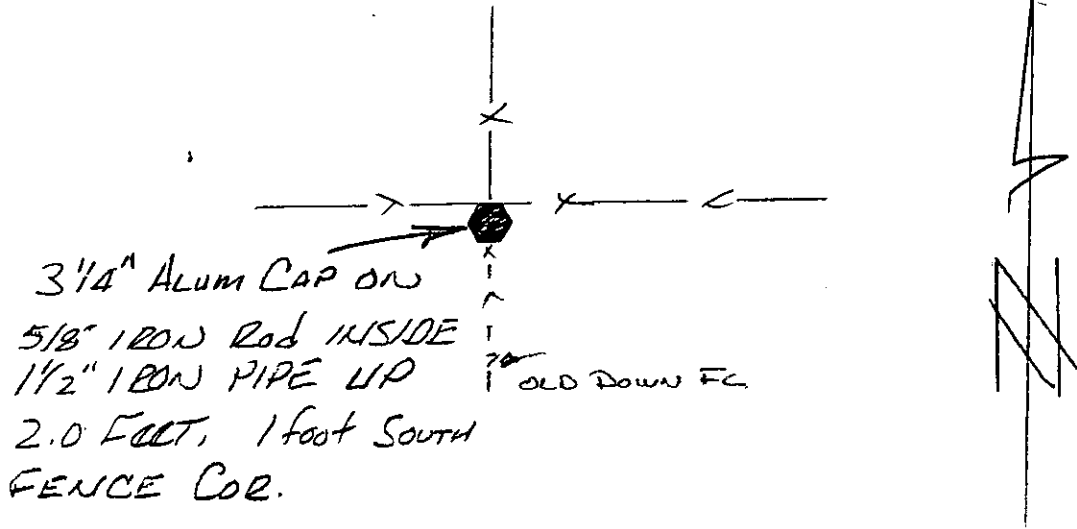 3 1/4" ALUM CAP ON
5/8" IRON Rod INSIDE
1 1/2" IRON PIPE UP
2.0 FEET, 1 foot SOUTH
FENCE COR.
OLD DOWN FC
N